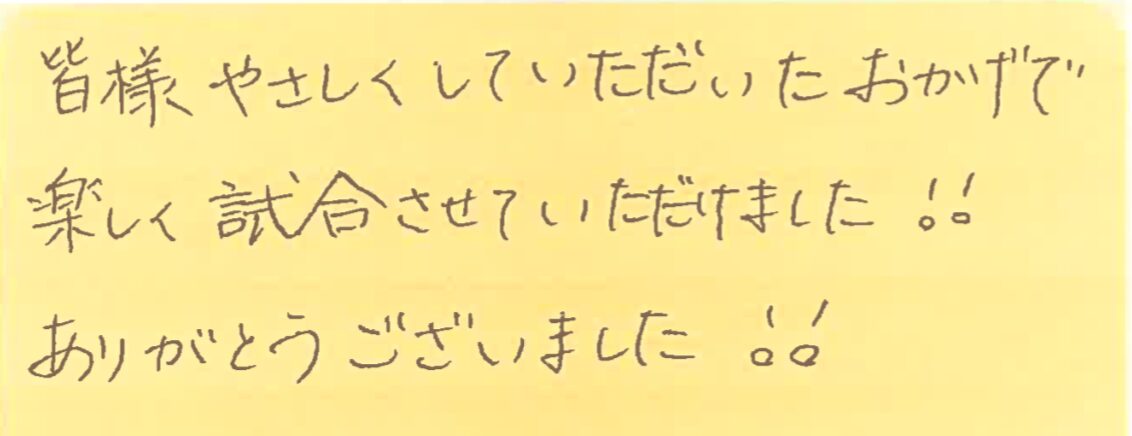 皆様 やさしくしていただいた おかげで
楽しく 試合させていただけました!!
ありがとうございました!!